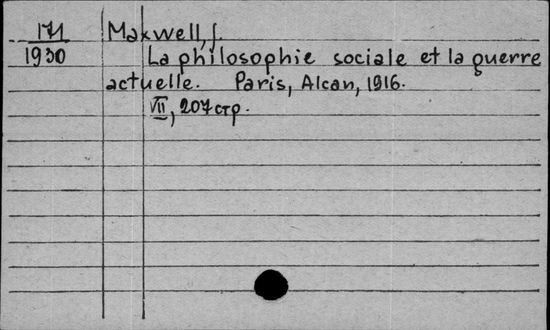 171 Maxwell, J.
1930 La philosophie sociale et la guerre
actuelle. Paris, Alcan, 1916.
VII, 207 стр.